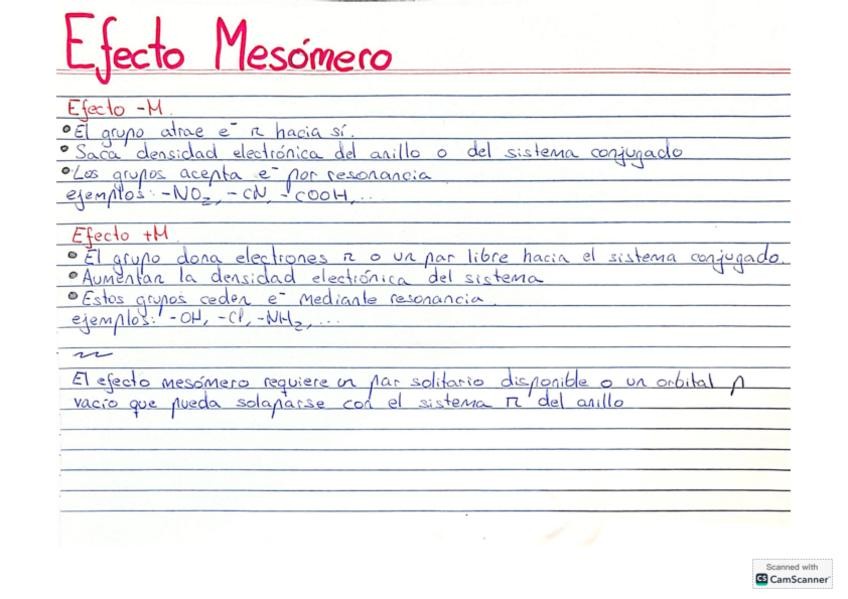 Efecto Mesómero
Efecto -M
• El grupo atrae e⁻ π hacia sí.
• Saca densidad electrónica del anillo o del sistema conjugado
• Los grupos acepta e⁻ por resonancia
ejemplos: -NO₂, -CN, -COOH, ...
Efecto +M
• El grupo dona electrones π o un par libre hacia el sistema conjugado.
• Aumentan la densidad electrónica del sistema
• Estos grupos ceden e⁻ mediante resonancia
ejemplos: -OH, -Cl, -NH₂, ...
El efecto mesómero requiere un par solitario disponible o un orbital p
vacío que pueda solaparse con el sistema π del anillo
Scanned with
CS CamScanner